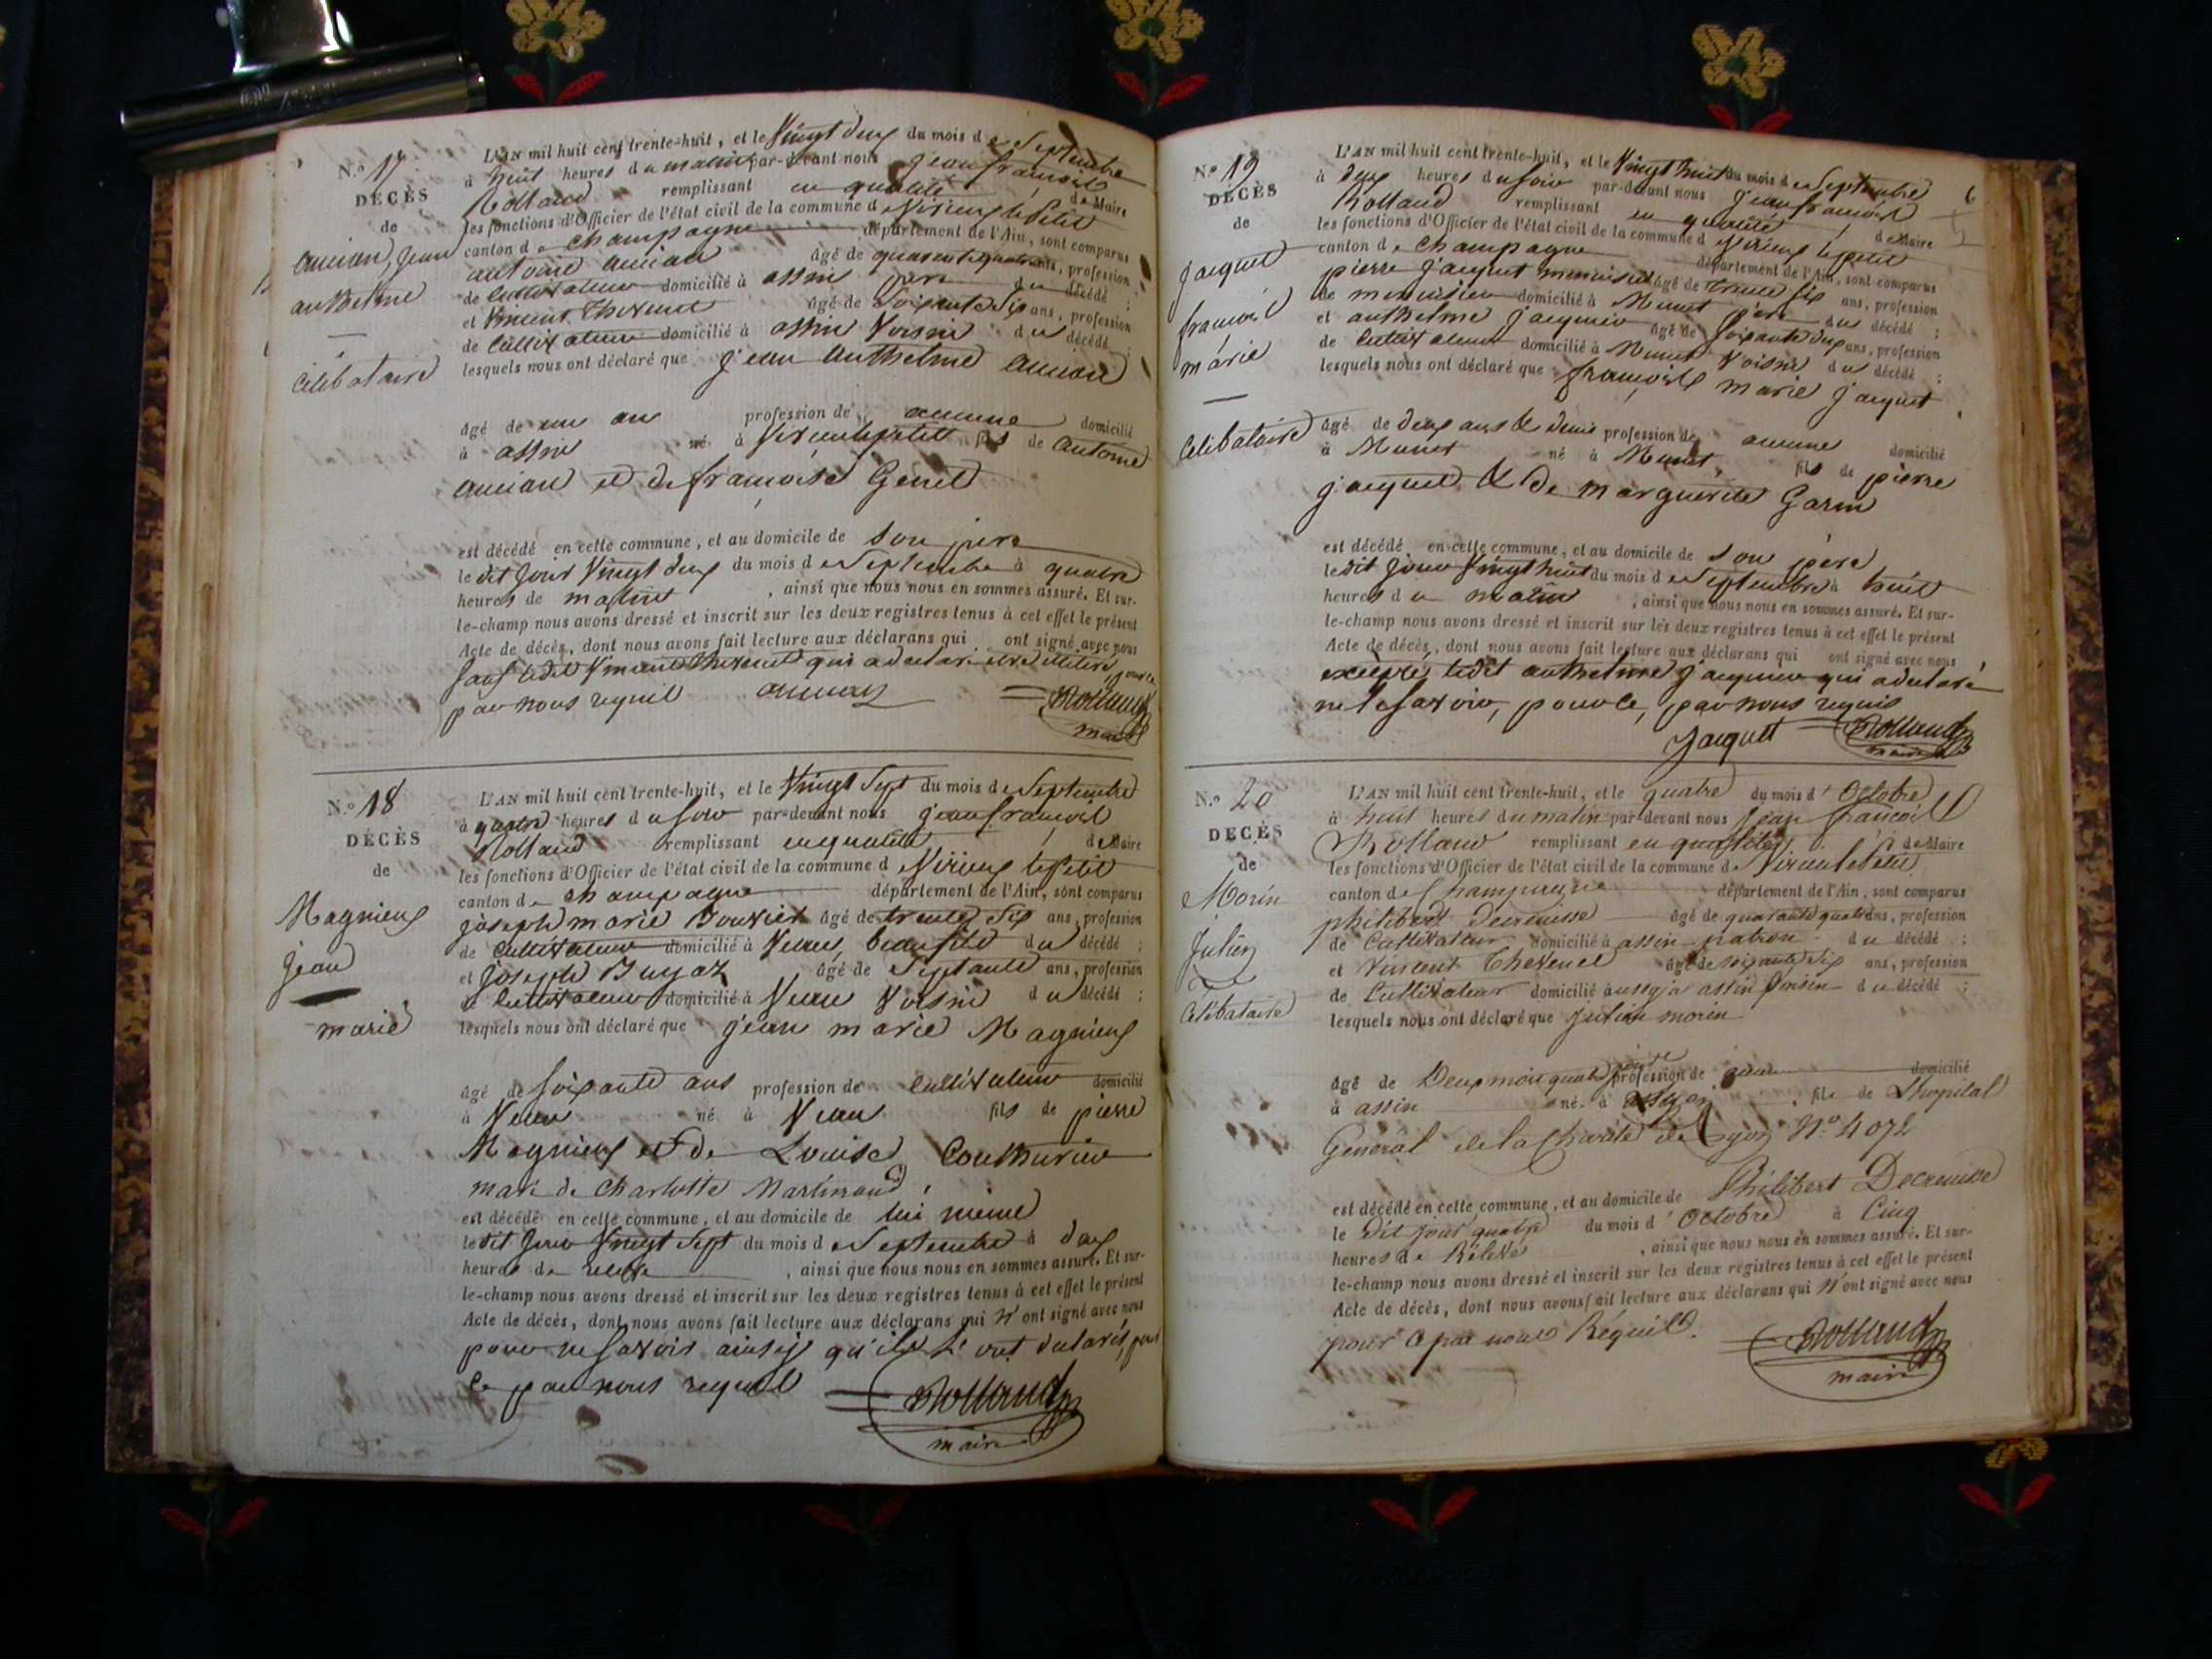 N.o 17
DÉCÈS
de
auinan, jean
anthelme
Célibataire
L'AN mil huit cent trente-huit, et le Vingt deux du mois de Septembre
à huit heures du matin par-devant nous jean françois
Rolland remplissant en qualité de Maire
les fonctions d'Officier de l'état civil de la commune de Virieux le Petit
canton de Champagne département de l'Ain, sont comparus
antoine âgé de quarante quatre ans, profession
de Cultivateur domicilié à assin père du décédé ;
et Vincent Thevenet âgé de Soixante Six ans, profession
de Cultivateur domicilié à assin Voisin du décédé ;
lesquels nous ont déclaré que jean anthelme
âgé de un an profession de aucune domicilié
à assin né à Virieu le petit fils de antoine
et de françoise Genet
est décédé en cette commune, et au domicile de son père
le dit jour Vingt deux du mois de Septembre à quatre
heures de matin , ainsi que nous nous en sommes assuré. Et sur-
le-champ nous avons dressé et inscrit sur les deux registres tenus à cet effet le présent
Acte de décès, dont nous avons fait lecture aux déclarans qui ont signé avec nous
Sauf ledit Vincent thevenet qui a déclaré être illitéré, pour ce
par nous requil Rolland
maire
N.o 18
DÉCÈS
de
Magnieux
jean
marie
L'AN mil huit cent trente-huit, et le Vingt Sept du mois de Septembre
à quatre heures du soir par-devant nous jean françois
Rolland remplissant en qualité de Maire
les fonctions d'Officier de l'état civil de la commune de Virieux le Petit
canton de Champagne département de l'Ain, sont comparus
joseph marie Bouvier âgé de trente Six ans, profession
de Cultivateur domicilié à beaufils du décédé ;
et joseph Buyat âgé de Septante ans, profession
de Cultivateur domicilié à Voisin du décédé ;
lesquels nous ont déclaré que jean marie Magnieux
âgé de soixante ans profession de Cultivateur domicilié
à né à fils de pierre
Magnieux et de Louise Couthurier
mari de Charlotte Martinand
est décédé en cette commune, et au domicile de lui même
le dit jour Vingt Sept du mois de Septembre à deux
heures de releve , ainsi que nous nous en sommes assuré. Et sur-
le-champ nous avons dressé et inscrit sur les deux registres tenus à cet effet le présent
Acte de décès, dont nous avons fait lecture aux déclarans qui n'ont signé avec nous
pour ne savoir ainsi qu'ils l'ont déclaré, pour
ce par nous requil Rolland
maire
N.o 19
DÉCÈS
de
jacquet
françois
marie
Célibataire
6
L'AN mil huit cent trente-huit, et le Vingt huit du mois de Septembre
à deux heures du soir par-devant nous jean françois
Rolland remplissant en qualité de Maire
les fonctions d'Officier de l'état civil de la commune de Virieux le petit
canton de Champagne département de l'Ain, sont comparus
pierre jacquet menuisier âgé de trente six ans, profession
de menuisier domicilié à Munet père du décédé ;
et anthelme jacquier âgé de soixante deux ans, profession
de Cultivateur domicilié à Munet Voisin du décédé ;
lesquels nous ont déclaré que françois marie jacquet
âgé de deux ans & demi profession de aucune domicilié
à Munet né à Munet, fils de pierre
jacquet & de marguerite Garin
est décédé en cette commune, et au domicile de son père
le dit jour Vingt huit du mois de Septembre à huit
heures du matin , ainsi que nous nous en sommes assuré. Et sur-
le-champ nous avons dressé et inscrit sur les deux registres tenus à cet effet le présent
Acte de décès, dont nous avons fait lecture aux déclarans qui ont signé avec nous
excepté ledit anthelme jacquier qui a déclaré
ne le savoir, pour ce, par nous requis
Jacquet Rolland
maire
N.o 20
DÉCÈS
de
Morin
Julien
Célibataire
L'AN mil huit cent trente-huit, et le quatre du mois d'Octobre
à huit heures du matin par-devant nous jean françois
Rolland remplissant en qualité de Maire
les fonctions d'Officier de l'état civil de la commune de Virieu le Petit
canton de Champagne département de l'Ain, sont comparus
philibert Decreuisse âgé de quarante quatre ans, profession
de Cultivateur domicilié à assin patron du décédé ;
et Vincent Thevenet âgé de soixante six ans, profession
de Cultivateur domicilié aussy à assin Voisin du décédé ;
lesquels nous ont déclaré que Julien morin
âgé de Deux mois quatre jours profession de domicilié
à assin né à Lyon fils de L'hopital
Général de la Charité de Lyon N.o 4072
est décédé en cette commune, et au domicile de Philibert Decreuisse
le dit jour quatre du mois d'Octobre à Cinq
heures de Rélevé , ainsi que nous nous en sommes assuré. Et sur-
le-champ nous avons dressé et inscrit sur les deux registres tenus à cet effet le présent
Acte de décès, dont nous avons fait lecture aux déclarans qui n'ont signé avec nous
pour ce par nous Réquils. Rolland
maire